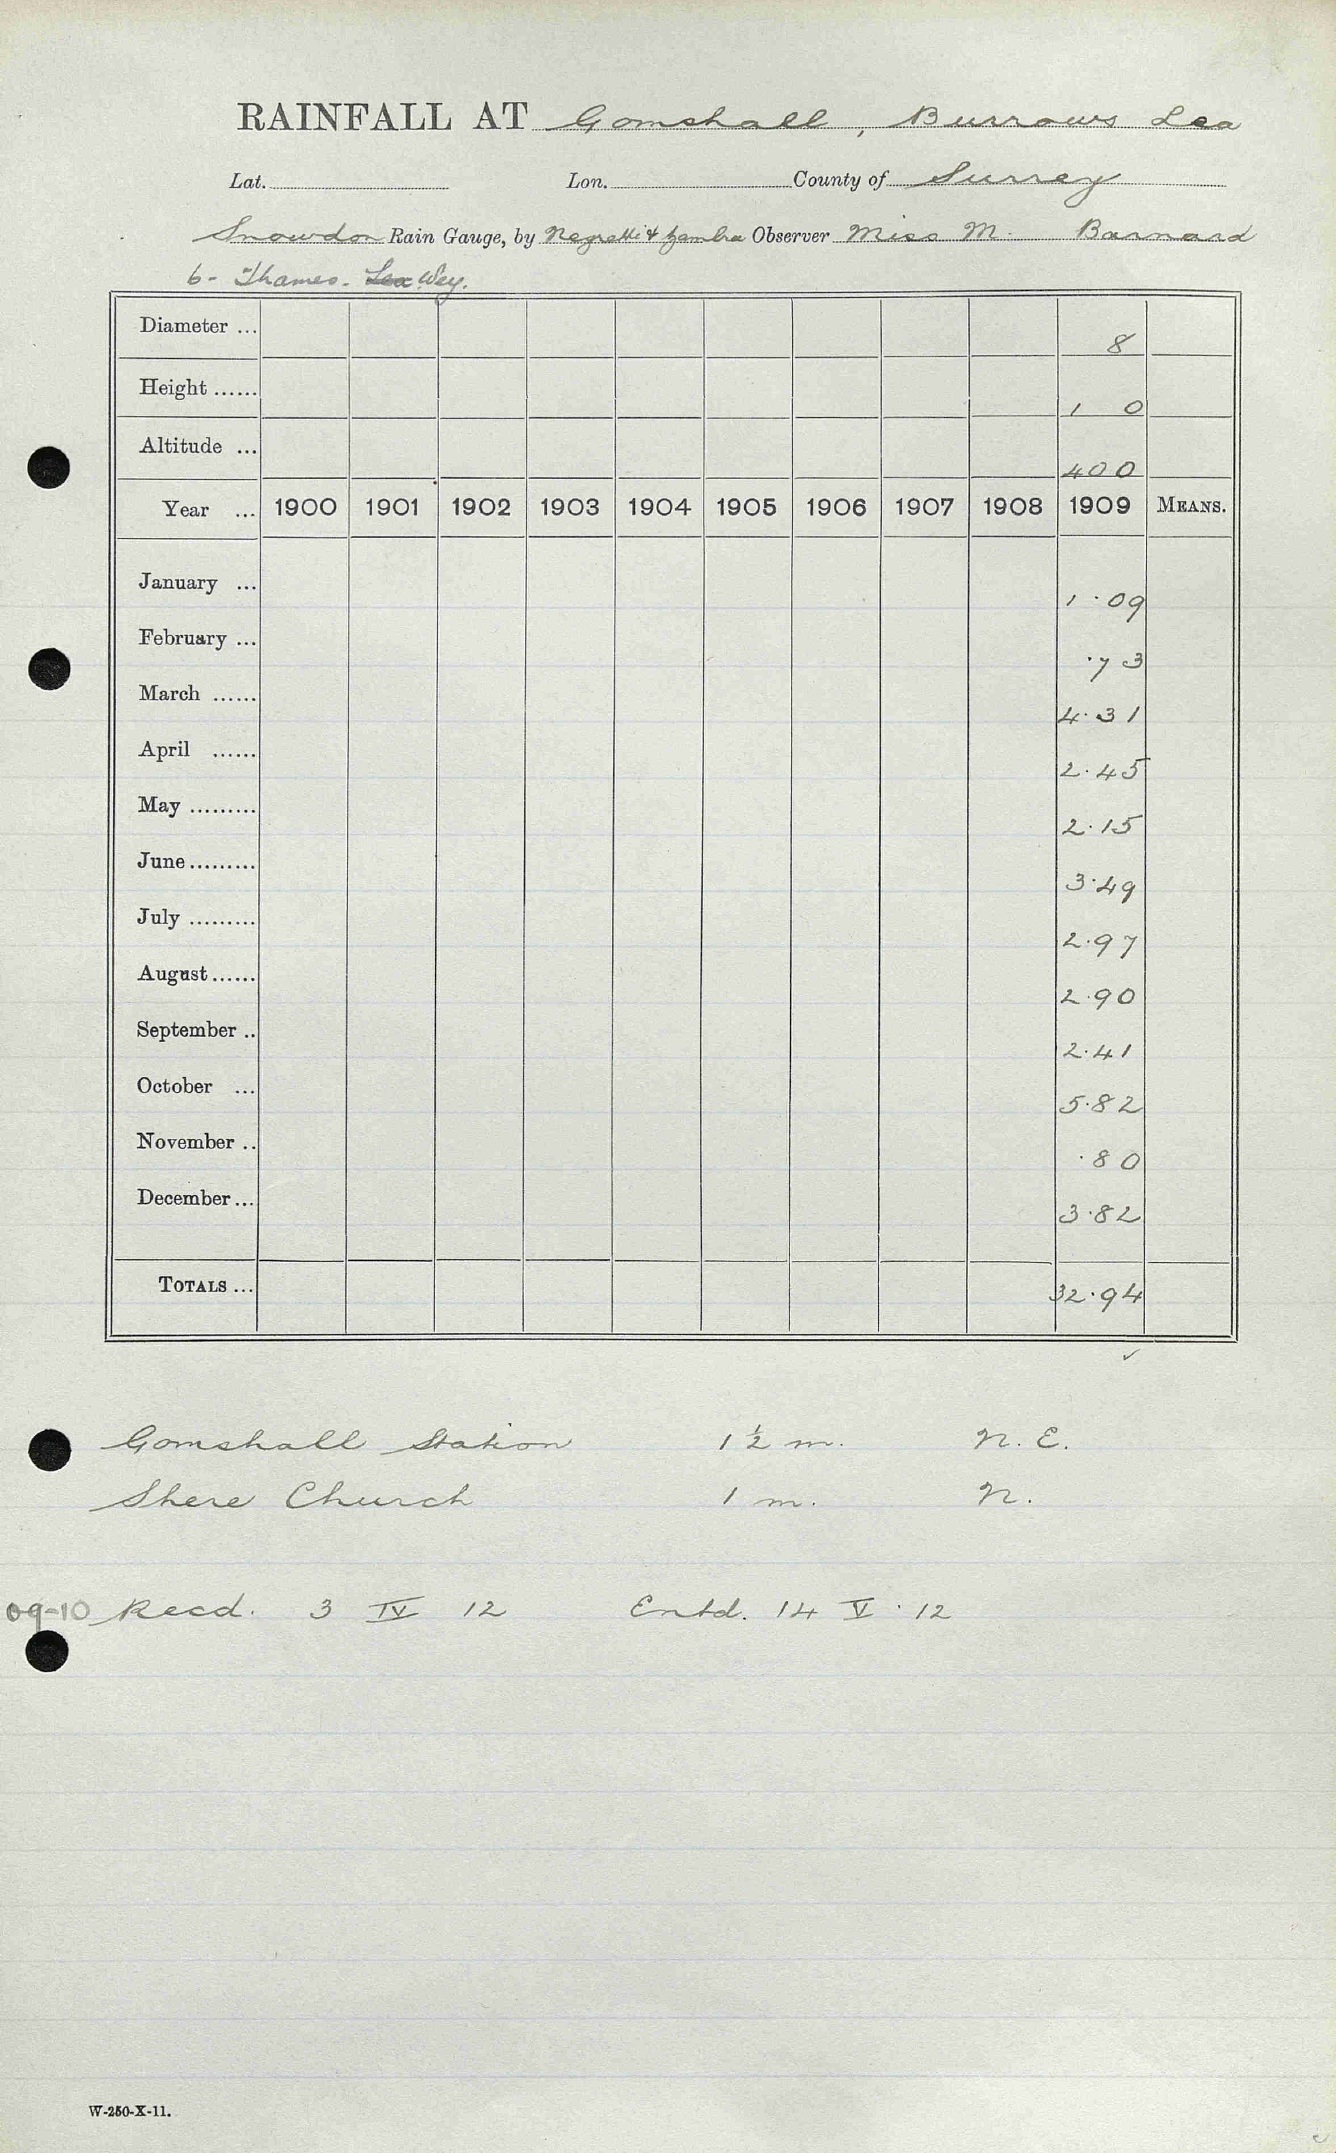 RAINFALL AT Gomshall, Burrows Lea
Lat. Lon. County of Surrey
Snowdon Rain Gauge, by Negretti & Zambra Observer Miss M. Barnard
6- Thames. Lea Wey.
Diameter ... 8
Height ...... 1 0
Altitude ... 400
Year ... 1900 1901 1902 1903 1904 1905 1906 1907 1908 1909 MEANS.
January ... 1.09
February ... .73
March ...... 4.31
April ...... 2.45
May ......... 2.15
June ......... 3.49
July ......... 2.97
August ...... 2.90
September .. 2.41
October ... 5.82
November .. .80
December ... 3.82
TOTALS ... 32.94
✓
Gomshall Station 1½ m. N.E.
Shere Church 1 m. N.
09-10 Recd. 3 IV 12 Entd. 14 V. 12
W-250-X-11.